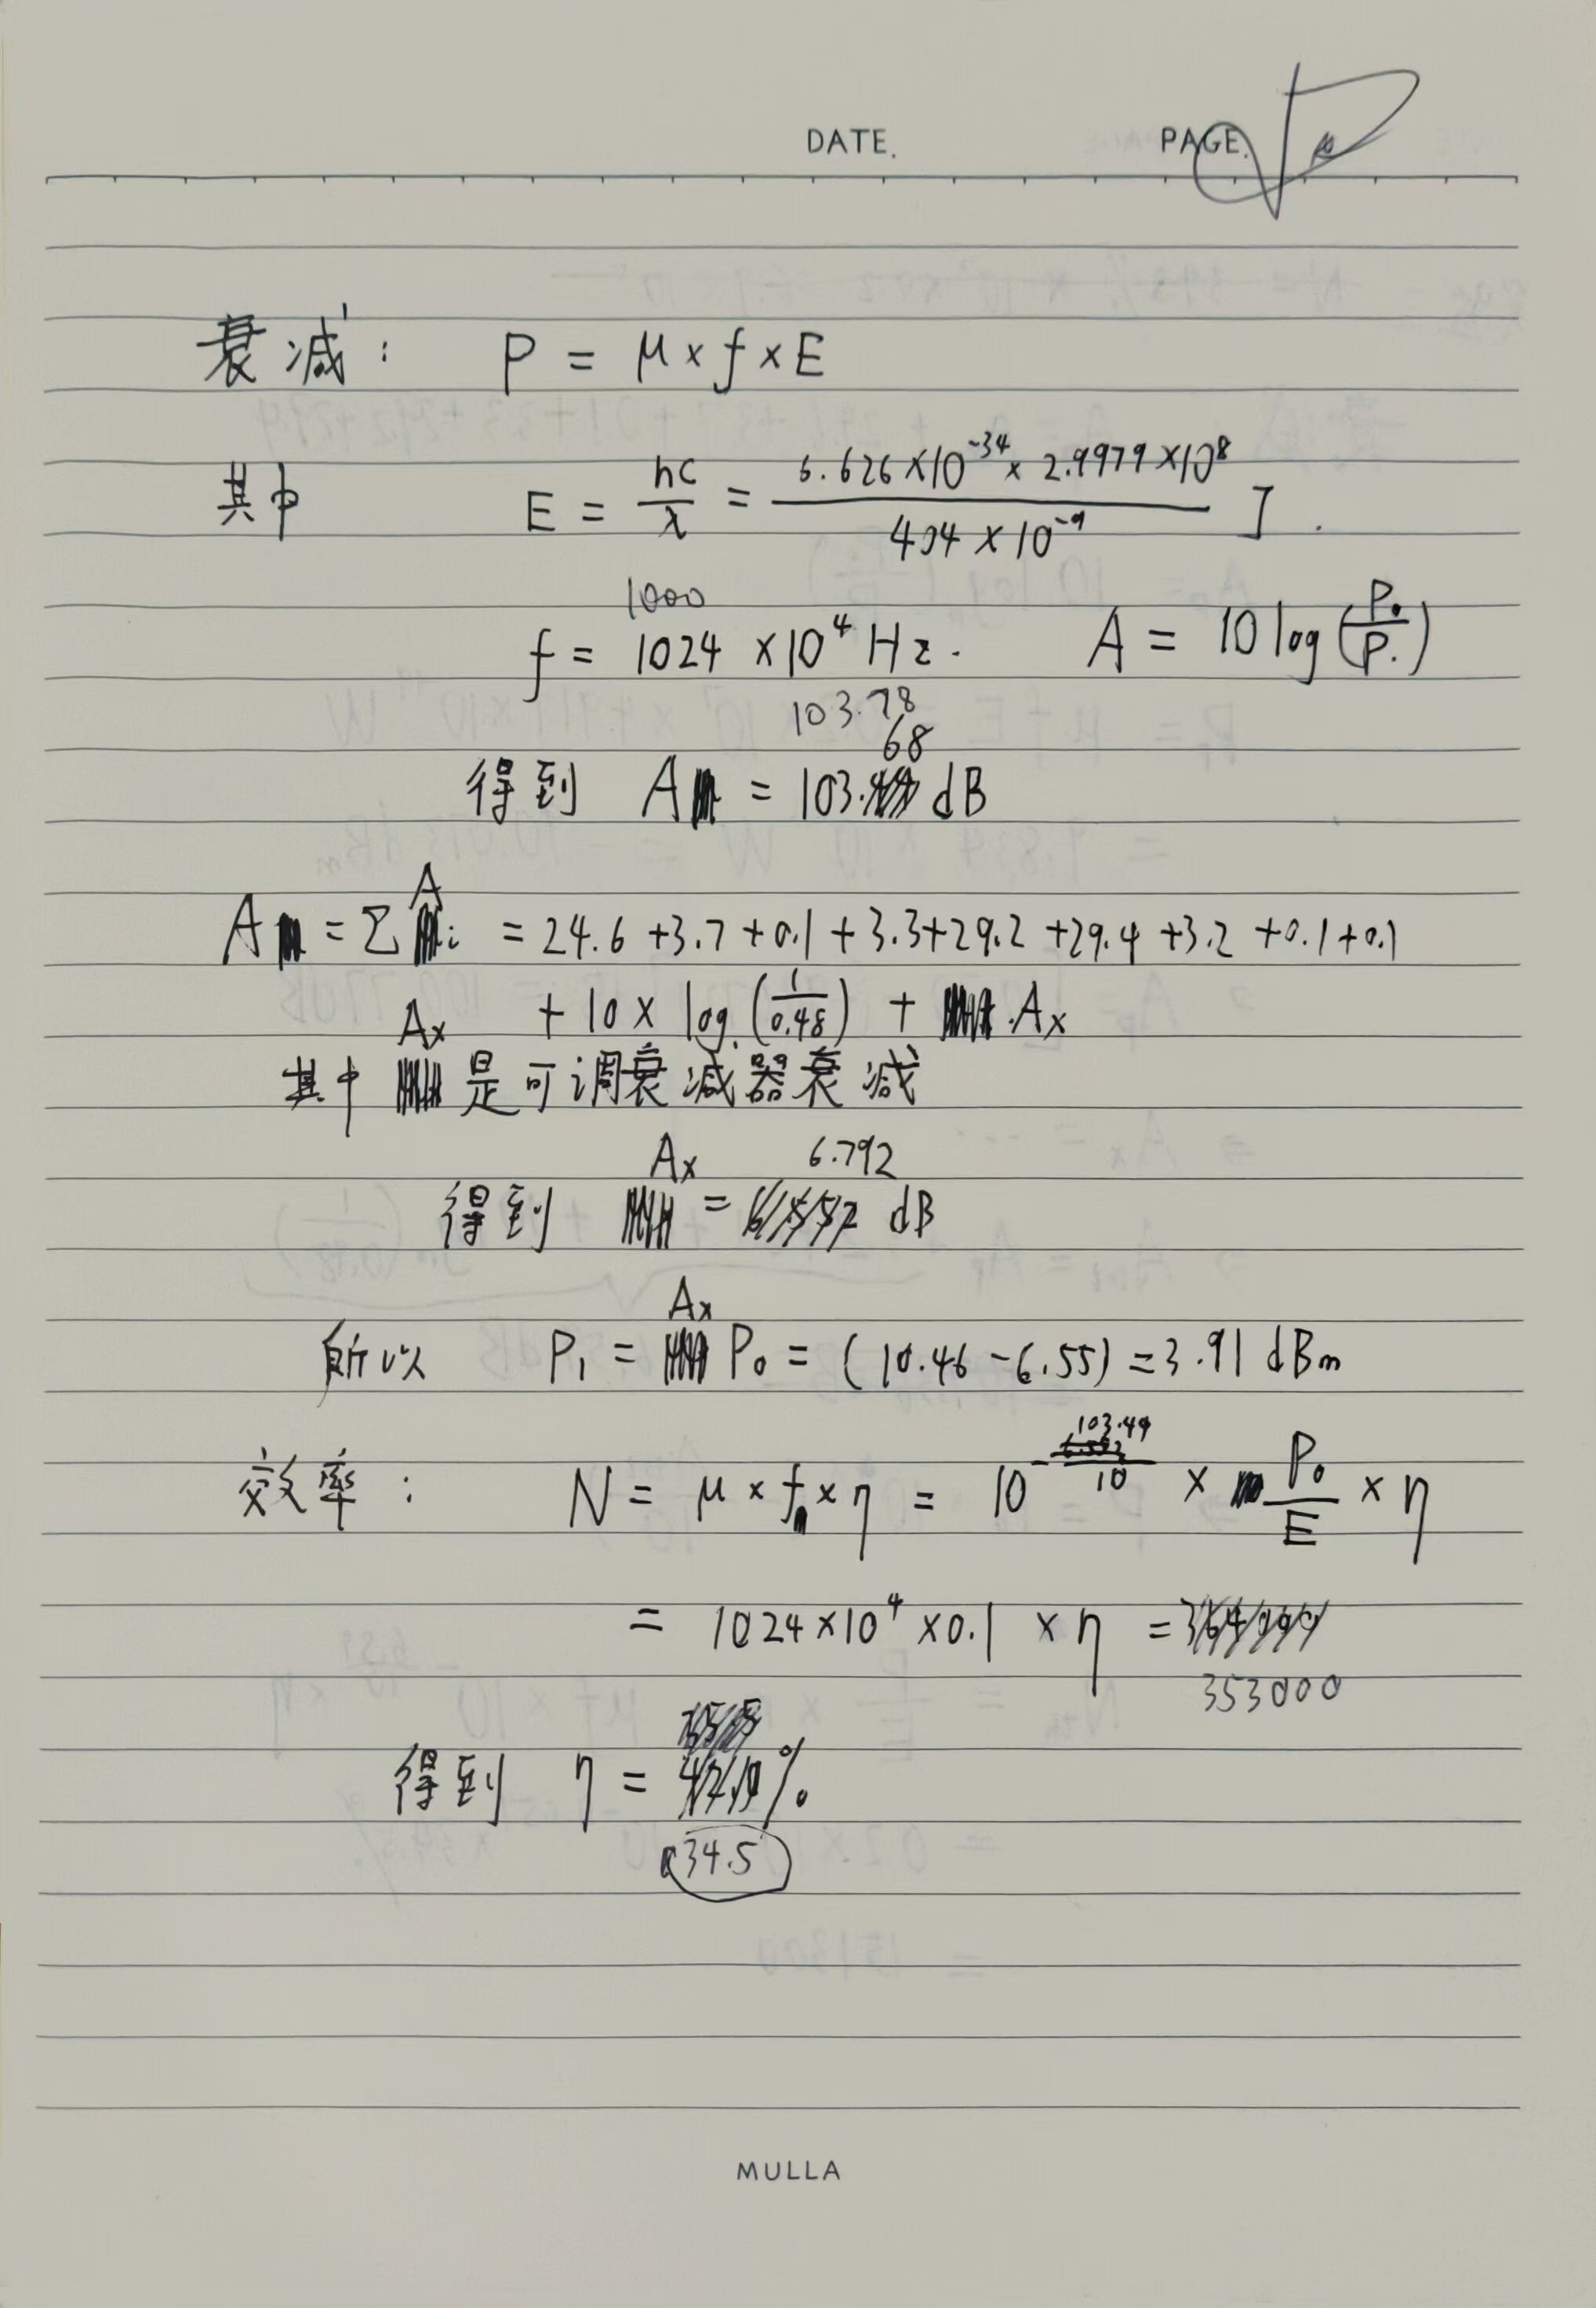 DATE. PAGE.
衰减: P = μ × f × E
其中 E = hc/λ = 6.626 × 10^-34 × 2.9979 × 10^8 / 404 × 10^-9 J.
1000
f = 1024 × 10^4 Hz. A = 10 log (P₀/P.)
103.78
68
得到 A = 103. dB
A
A = Σ i = 24.6 + 3.7 + 0.1 + 3.3 + 29.2 + 29.4 + 3.2 + 0.1 + 0.1
Ax + 10 × log. (1/0.48) + Ax
其中 是可调衰减器衰减
Ax 6.792
得到 = dB
Ax
所以 P₁ = P₀ = (10.46 - 6.55) = 3.91 dBm
103.49
效率: N = μ × f × η = 10^-/10 × P₀/E × η
= 1024 × 10^4 × 0.1 × η =
353000
得到 η = %.
34.5
MULLA